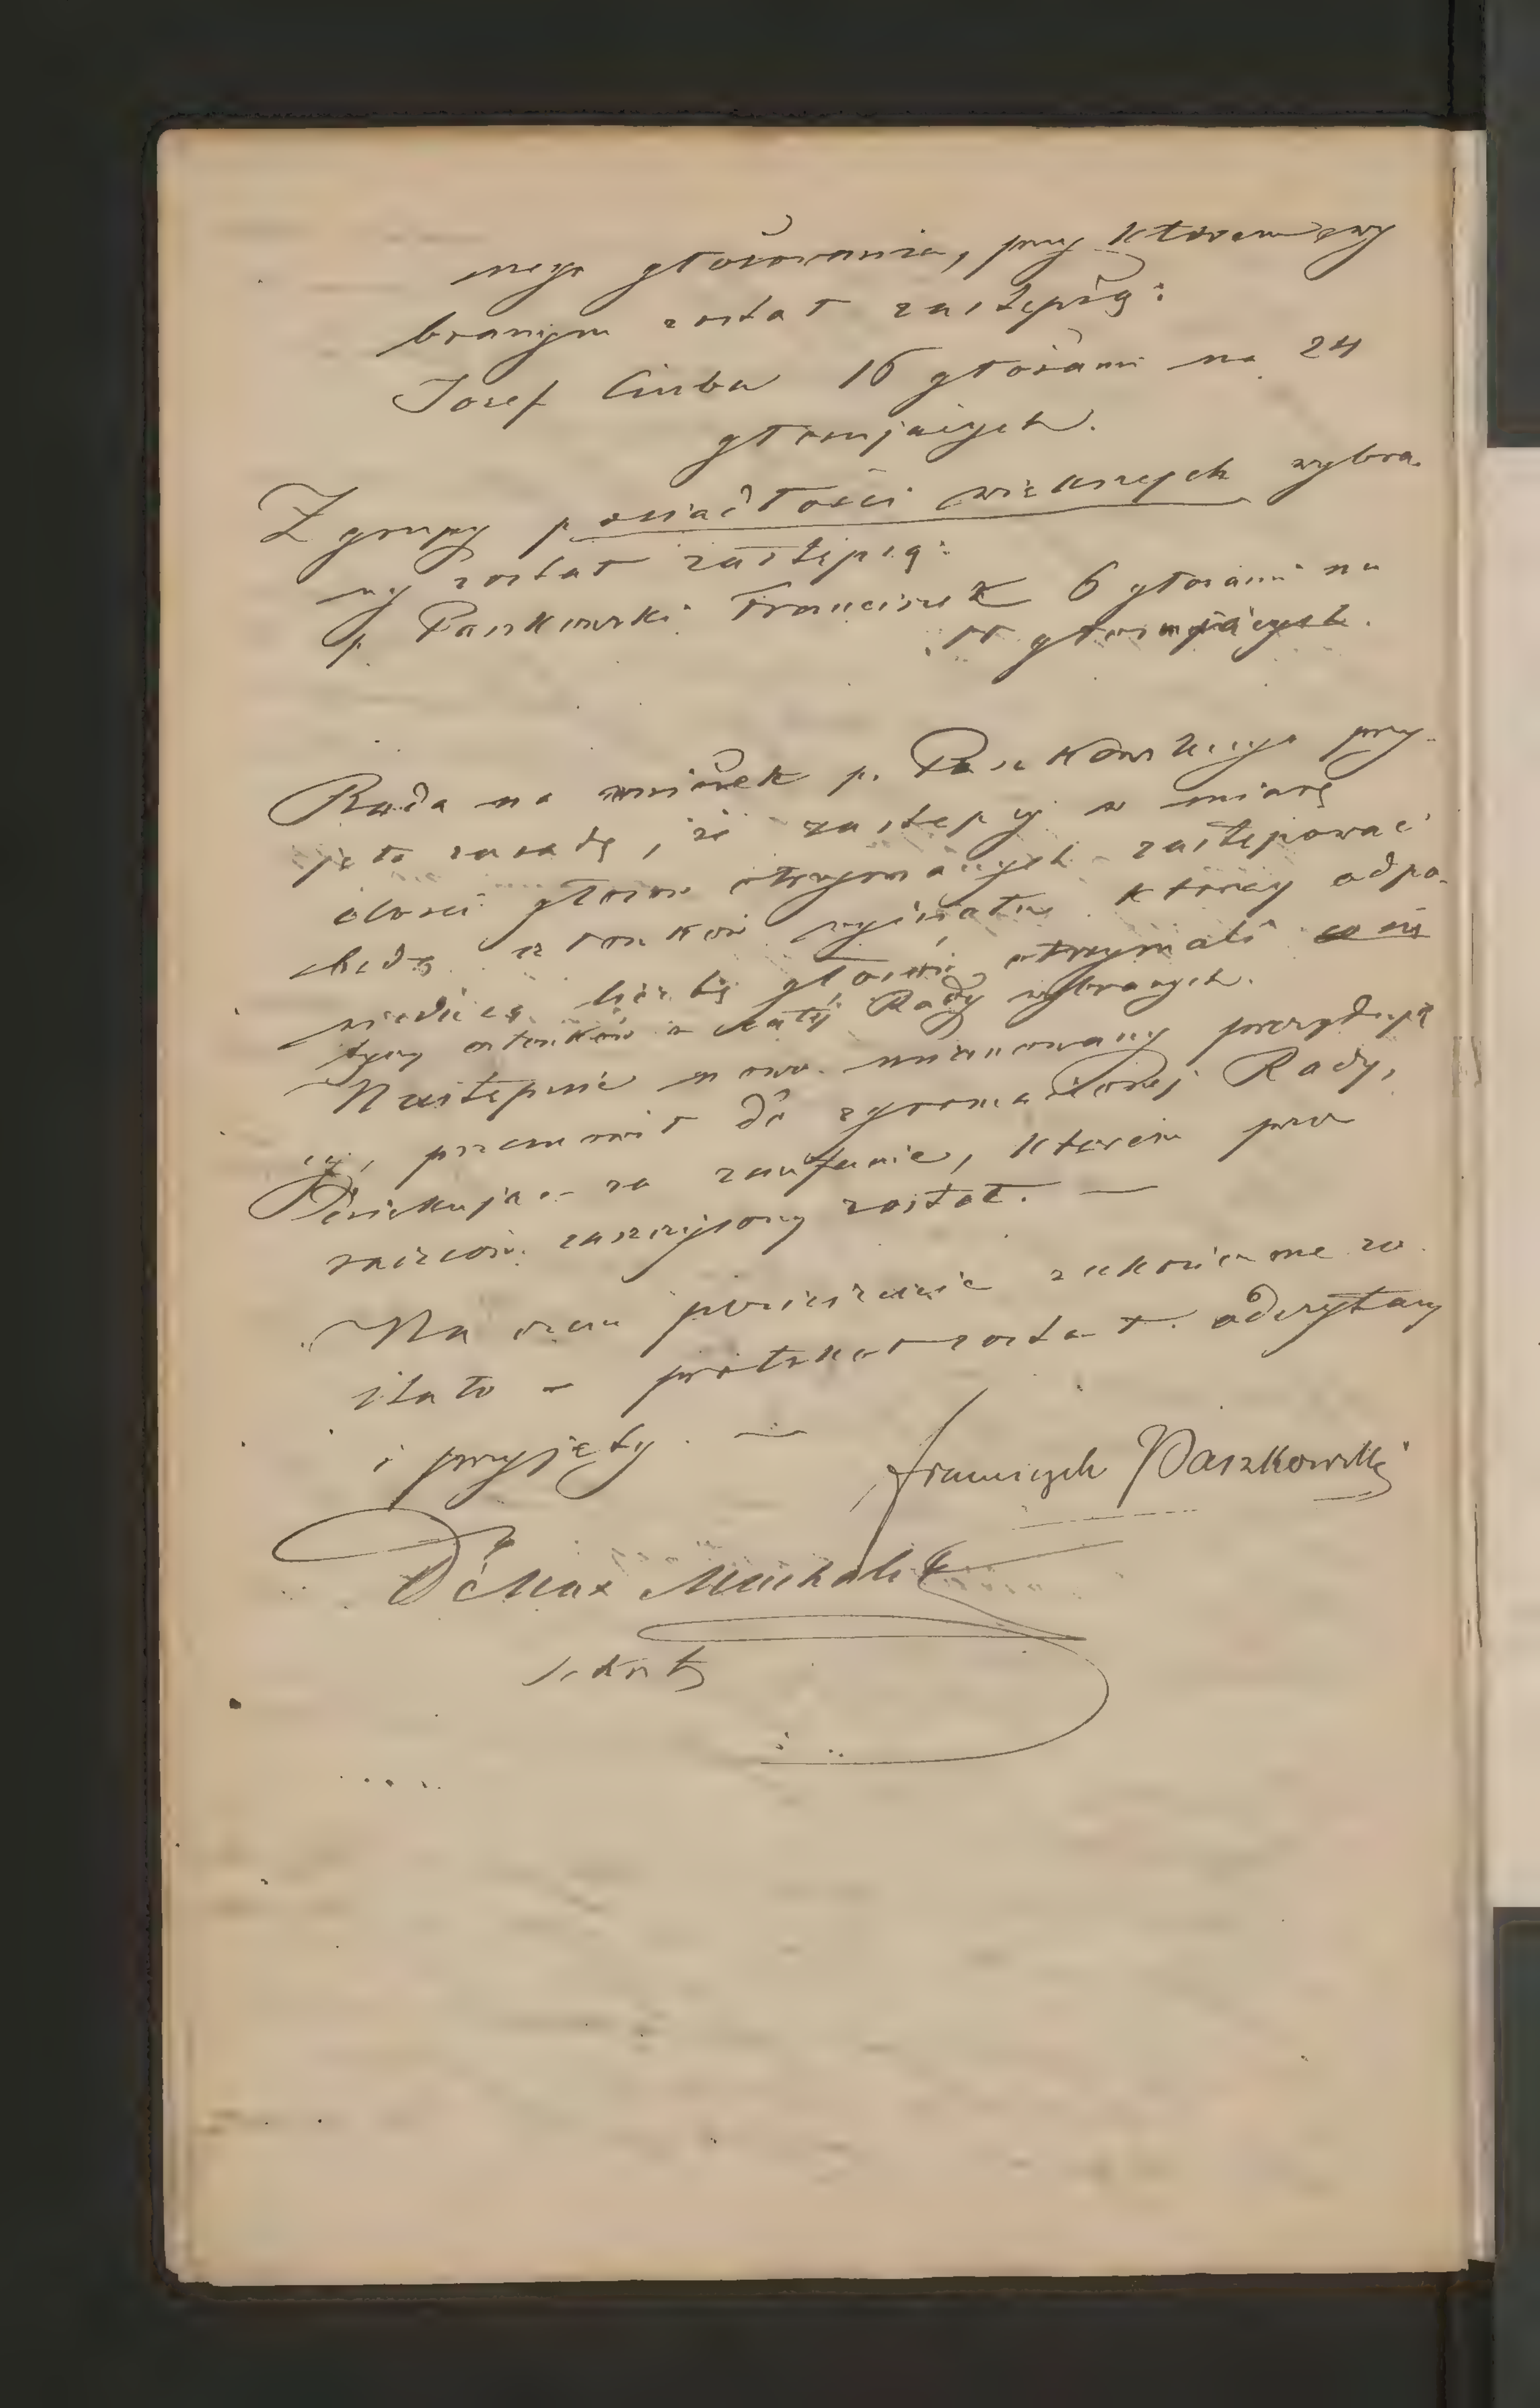 nego głosowania, przy którem wy
branym został zastępcą:
Josef Ciuba 16 głosami na 24
głosujących.
Z grupy posiadłości większych wybra
ny został zastępcą:
p. Paszkowski Franciszek 6 głosami na
głosujących.
Rada na wniosek p. Paszkowskiego przy-
jęła zasadę, iż zastępcy w miarę
ilości głosów otrzymanych zastępować
będą członków wydziału którzy odpo-
wiednią liczbę głosów otrzymali
tyczy członków z całej Rady wybranych.
Następnie nowo mianowany prezydują
cy, przemówił do zgromadzonej Rady,
Dziękując za zaufanie, którem przez
zaszczycony został. —
Na czem posiedzenie zakończone zo
stało – protokół został odczytany
i przyjęty. —
Franciszek Paszkowski
Dr Max Machalski
sekretz